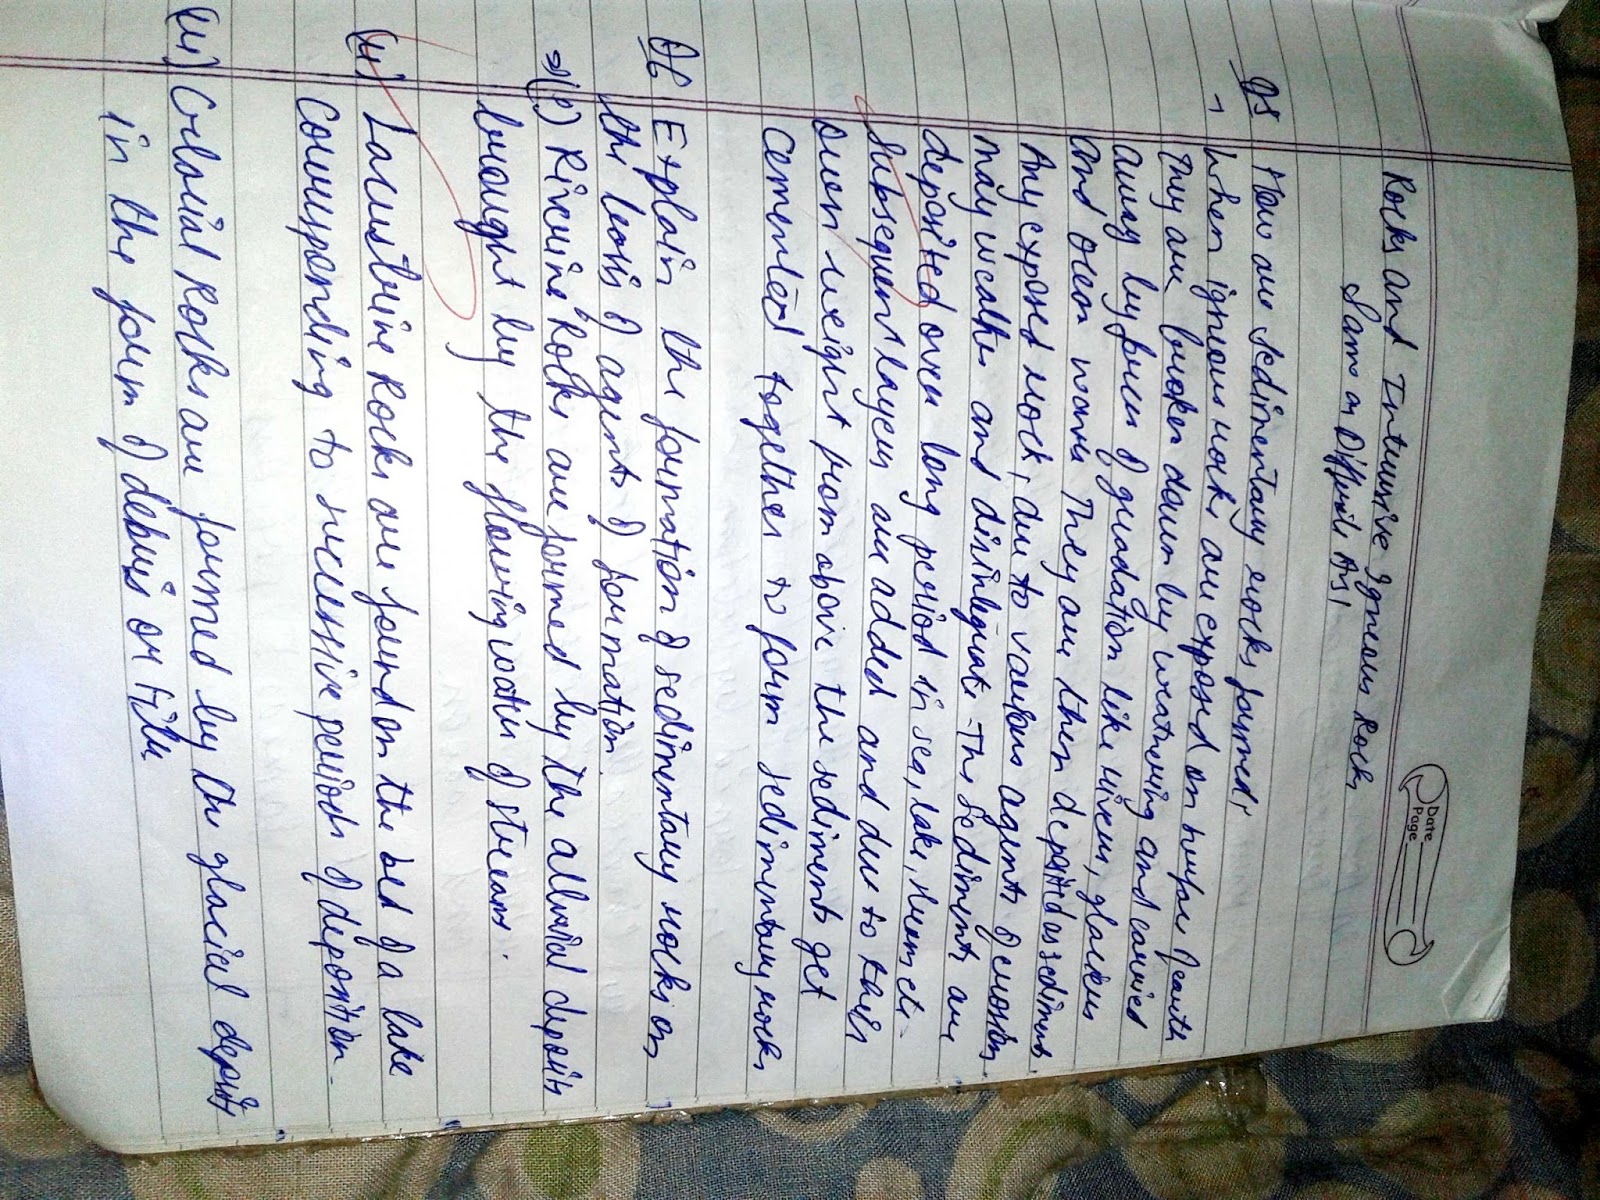 Date
Page
Rocks and Intrusive Igneous Rocks
Same as Diff
Q5 How are sedimentary rocks formed?
→ When igneous rocks are exposed on surface of earth
They are broken down by weathering and carried
away by forces of gradation like rivers, glaciers
and ocean waves They are then deposited as sediments.
Any exposed rock, due to various agents of erosion,
may weather and disintegrate. The sediments are
deposited over long period in sea, lake, rivers etc.
Subsequent layers are added and due to their
own weight from above the sediments get
cemented together to form sedimentary rocks
Q6 Explain the formation of sedimentary rocks on
the basis of agents of formation.
⇒(i) Riverine Rocks are formed by the alluvial deposits
brought by the flowing water of streams.
(ii) Lacustrine Rocks are found on the bed of a lake
Corresponding to successive periods of deposition.
(iii) Glacial Rocks are formed by the glacial deposits
in the form of debris or